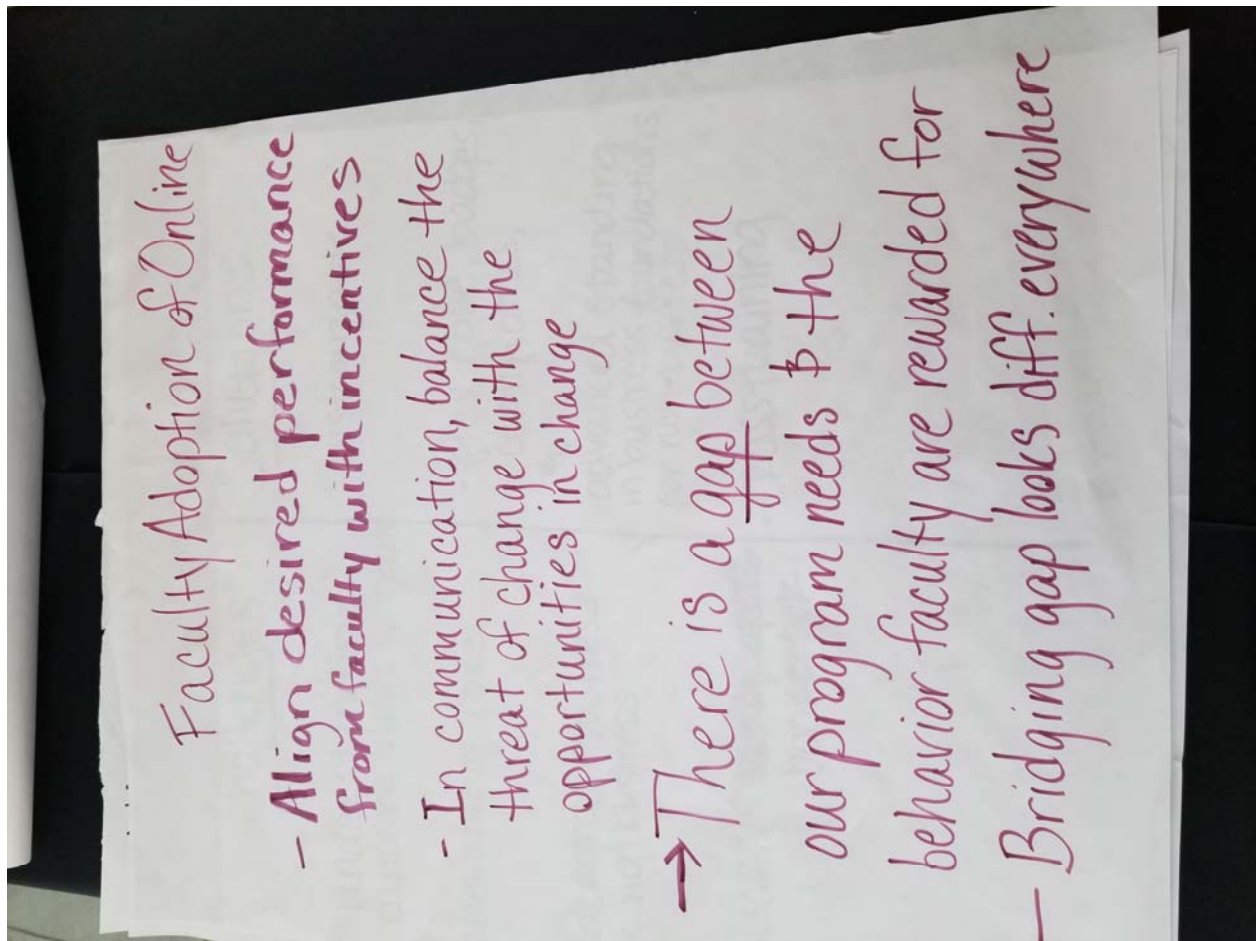 Faculty Adoption of Online
- Align desired performance
from faculty with incentives
- In communication, balance the
threat of change with the
opportunities in change
→ There is a gap between
our program needs & the
behavior faculty are rewarded for
- Bridging gap looks diff. everywhere